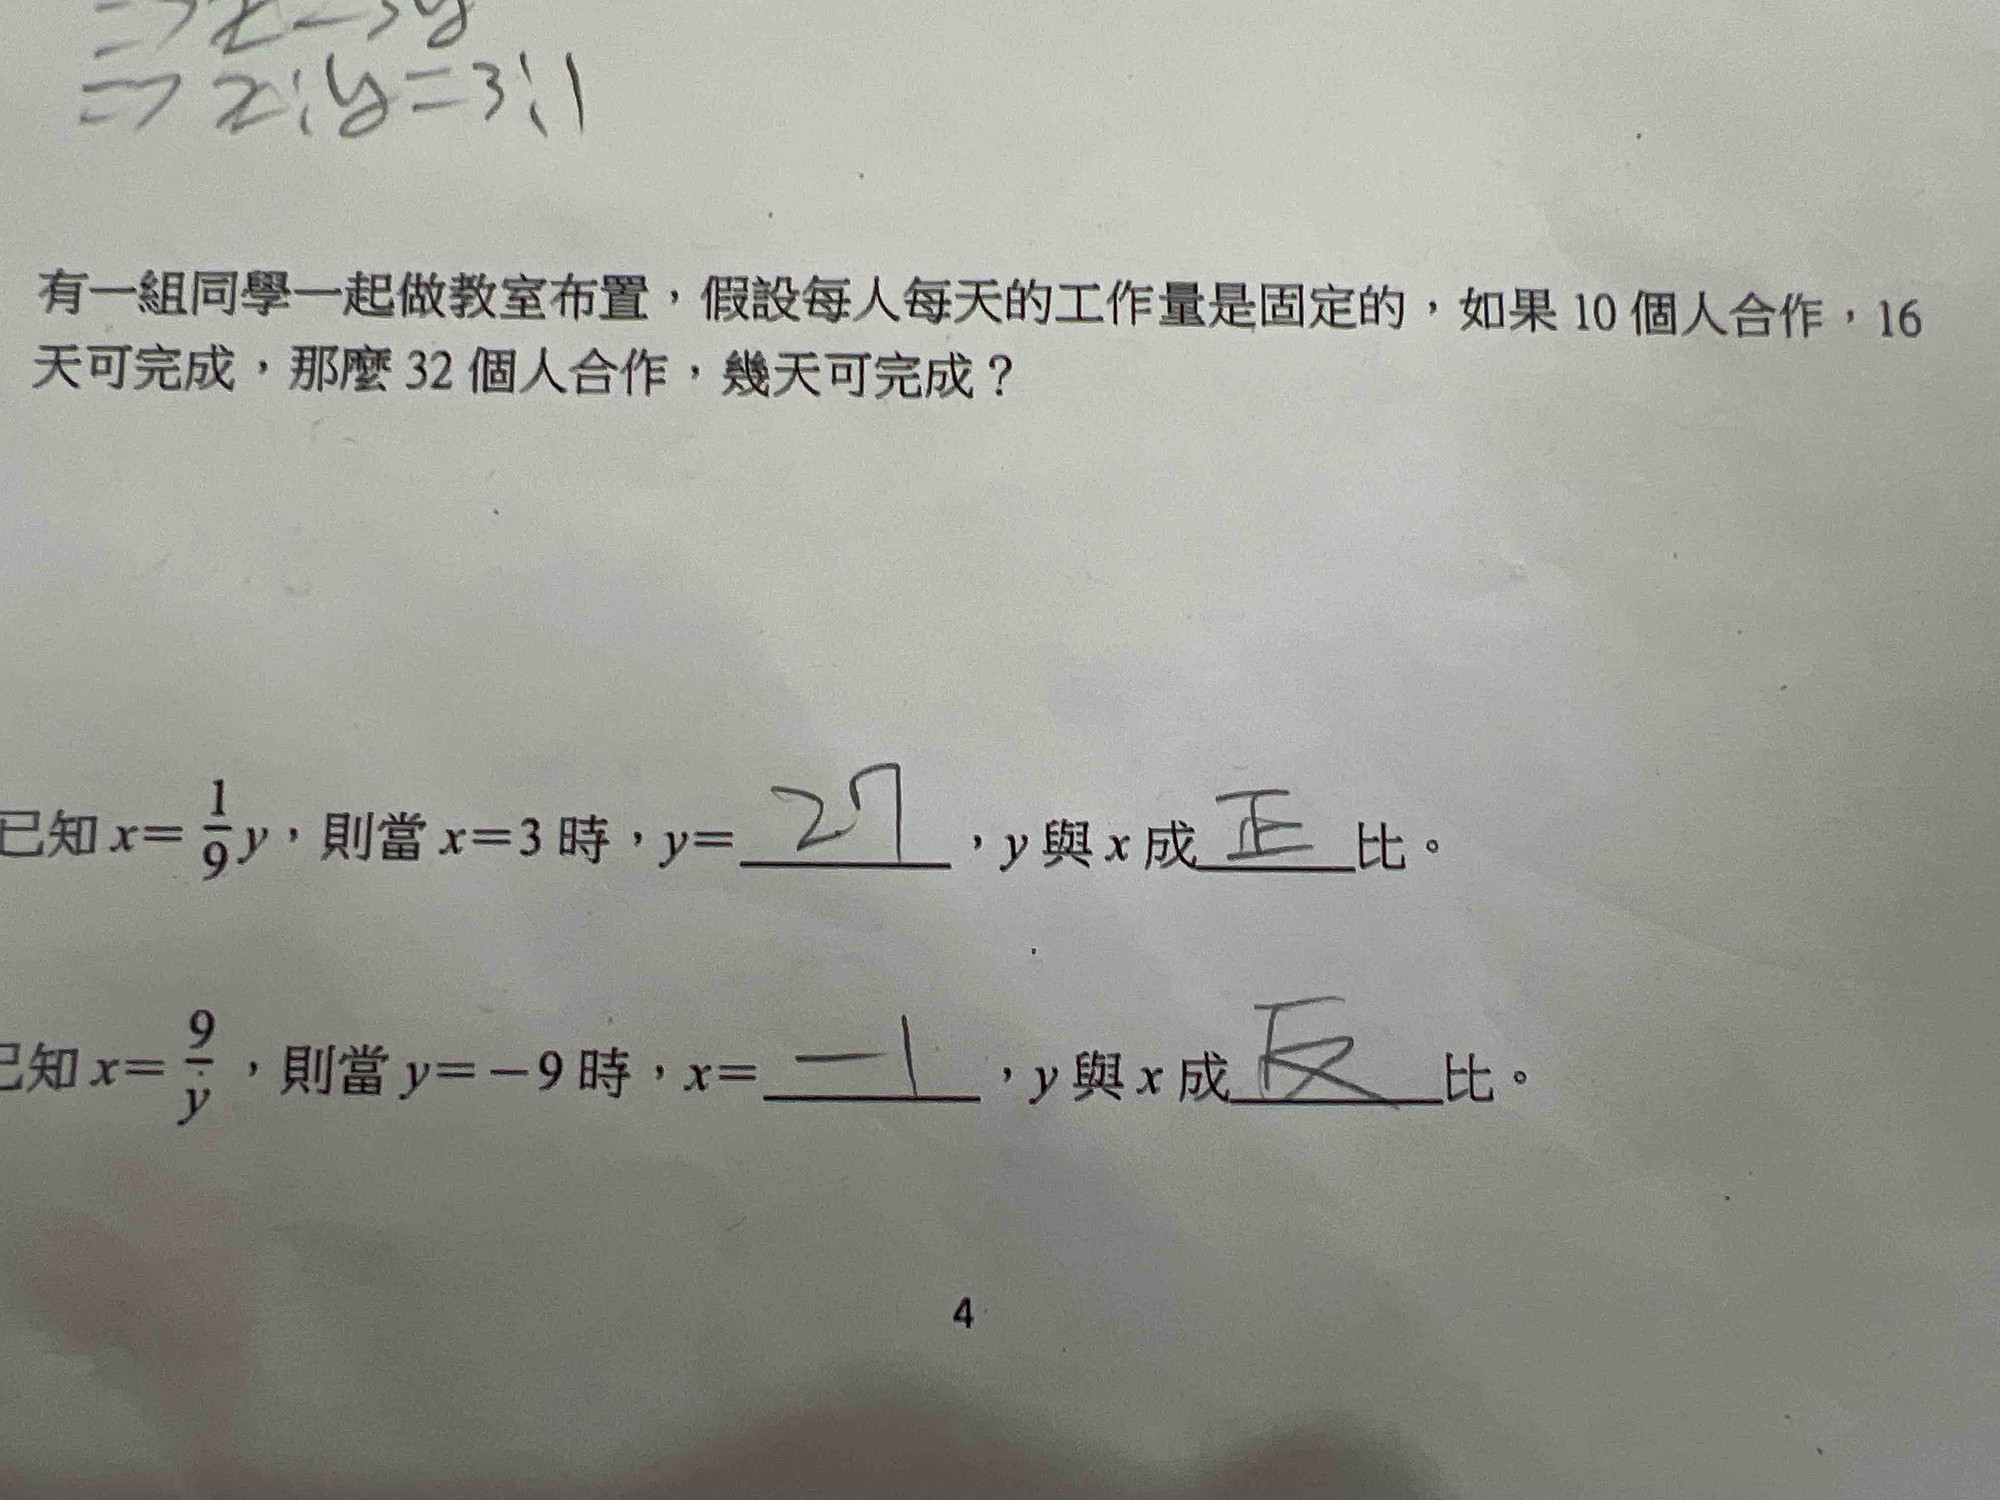 ⇒x=3y
⇒x:y=3:1
有一組同學一起做教室布置,假設每人每天的工作量是固定的,如果 10 個人合作,16
天可完成,那麼 32 個人合作,幾天可完成?
已知 x=1/9 y,則當 x=3 時,y=27,y 與 x 成正比。
已知 x=9/y,則當 y=-9 時,x=-1,y 與 x 成反比。
4